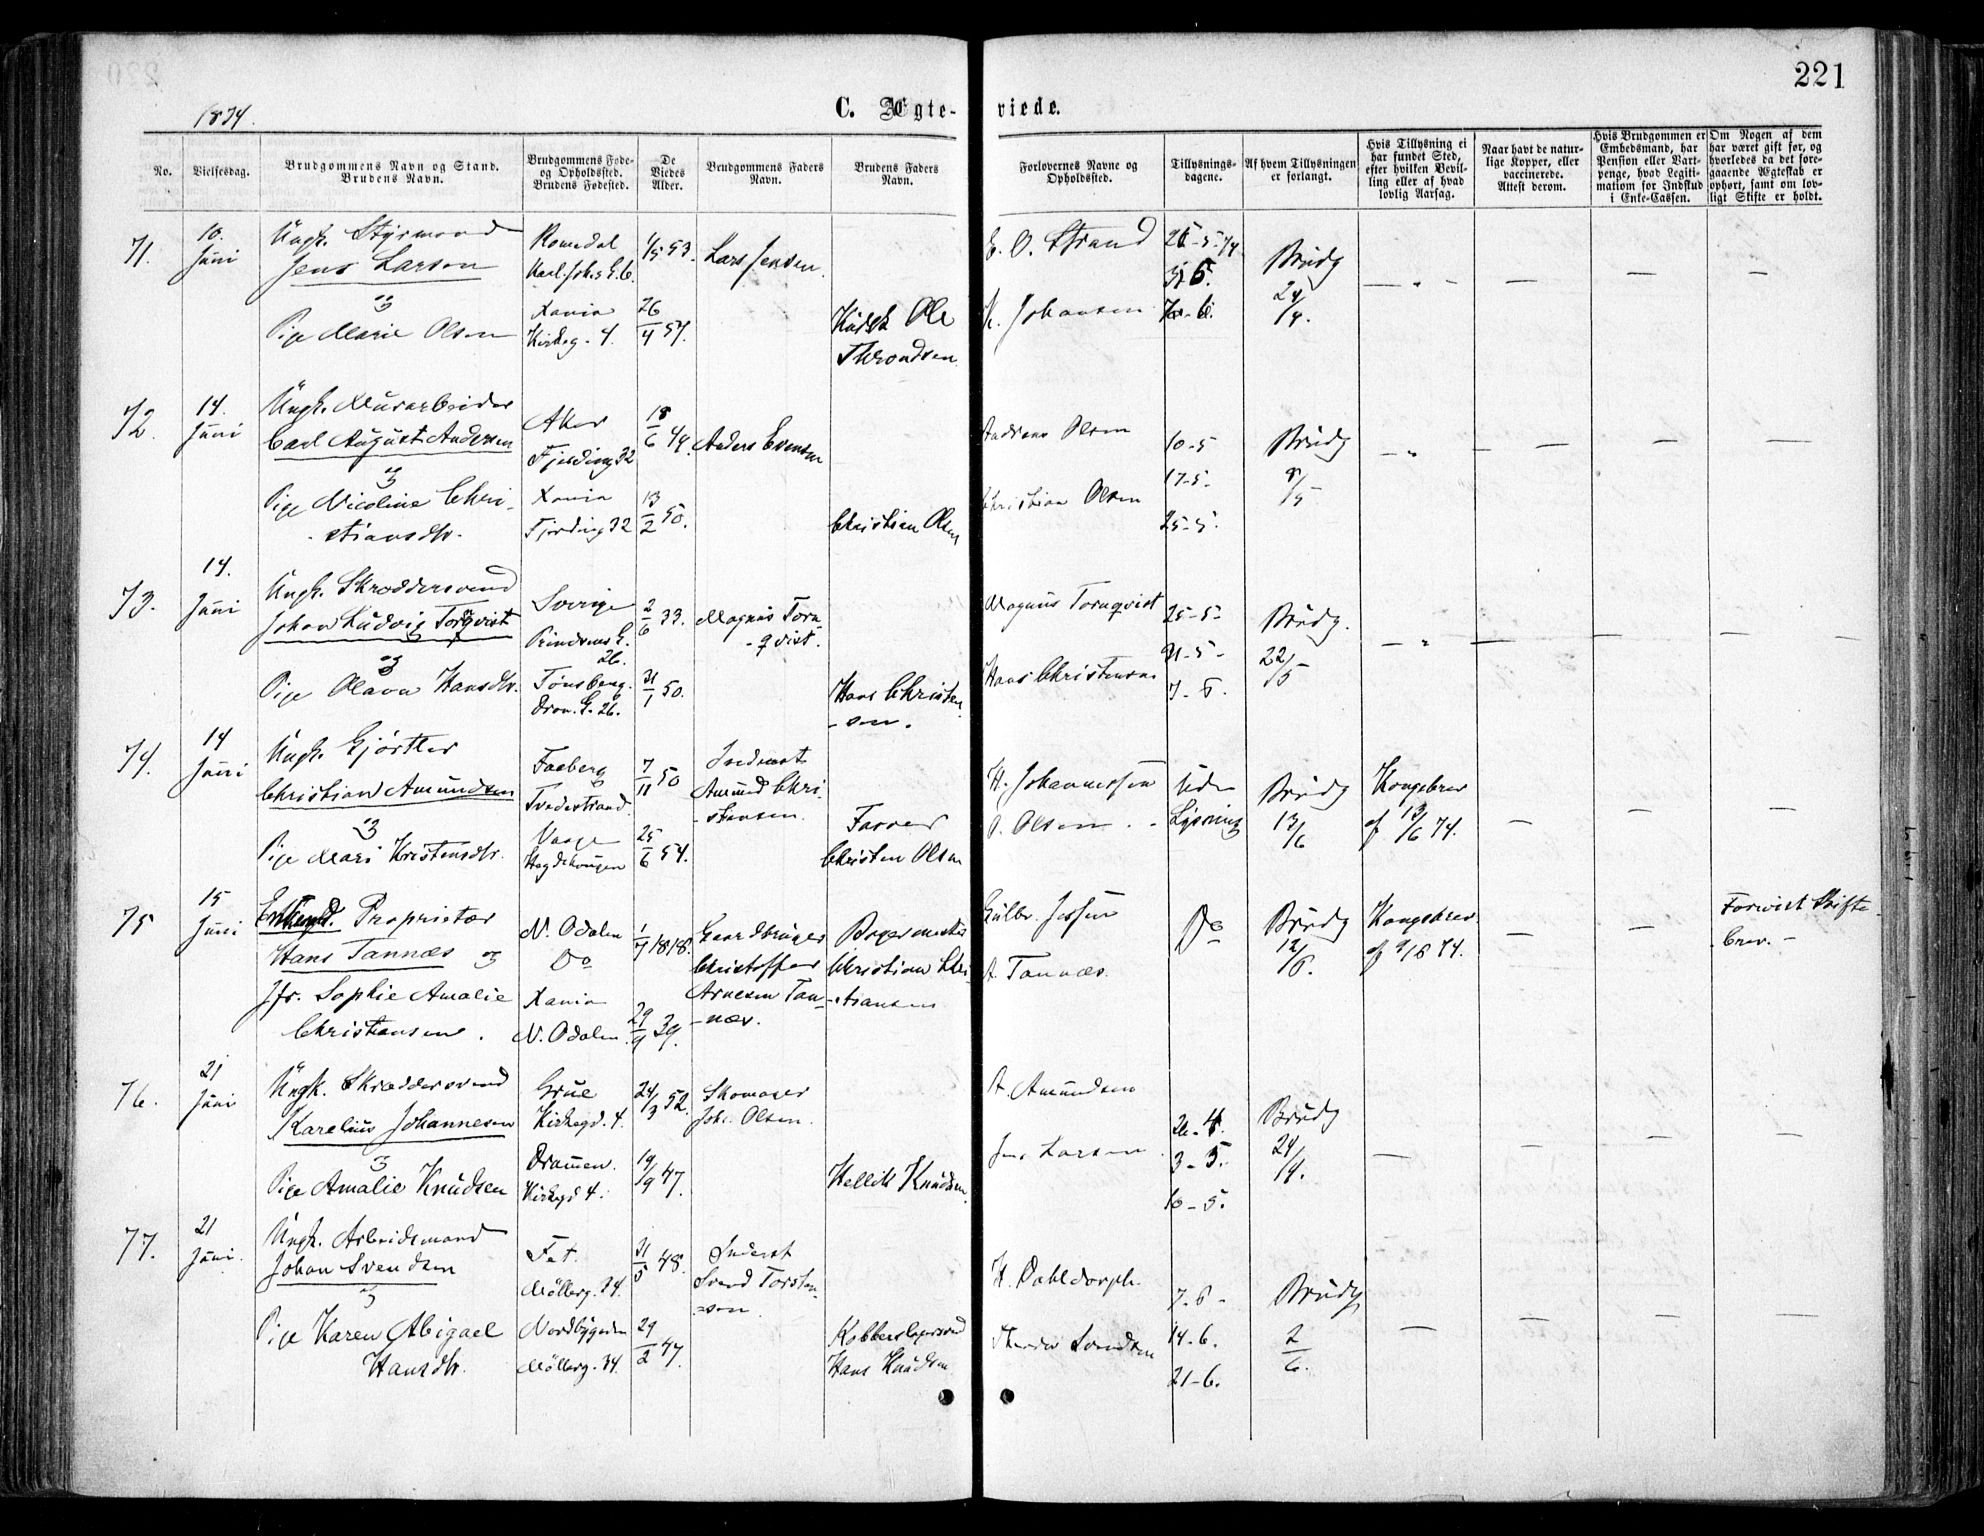 221
1874.
C. Ægte-
viede.
No.
Vielsesdag.
Brudgommens Navn og Stand.
Brudens Navn.
Brudgommens Føde-
og Opholdssted.
Brudens Fødested.
De
Viedes
Alder.
Brudgommens Faders
Navn.
Brudens Faders
Navn.
Forlovernes Navne og
Opholdssted.
Tillysnings-
dagene.
Af hvem Tillysningen
er forlangt.
Hvis Tillysning ei
har fundet Sted,
efter hvilken Bevil-
ling eller af hvad
lovlig Aarsag.
Naar havt de natur-
lige Kopper, eller
vaccinerede.
Attest derom.
Hvis Brudgommen er
Embedsmand, har
Pension eller Vart-
penge, hvad Legiti-
mation for Indskud
i Enke-Cassen.
Om Nogen af dem
har været gift før, og
hvorledes da det fore-
gaaende Ægteskab er
ophørt, samt om lov-
ligt Skifte er holdt.
71.
10.
Juni
Ungk. Styrmand
Jens Larsen
og
Pige Marie Olsen
Romedal
Karl Johs G. 6.
Xania
Kirkeg. 4.
1/5 53.
26/4 54.
Lars Jensen.
Kudsk Ole
Throndsen
E. O. Strand
K. Johansen
-5-74
Brudg
24/4.
72.
14.
Juni
Ungk. Murarbeider
Carl August Andersen
og
Pige Nicoline Chri-
-stiansdtr.
Aker
Fjerding 32
Xania
Fjerding 32
18/6 49.
13/2 50.
Anders Evensen
Christian Olsen
Andreas Olsen
Christian Olsen
10-5
17-5.
25-5.
Brudg
8/5
73.
14.
Juni
Ungk. Skræddersvend
Johan Ludvig Tornqvist
og
Pige Olava Hansdtr.
Sverige
Prindsens G.
26.
Tønsberg.
Dron. G. 26.
2/6 33.
31/1 50.
Magnus Torn-
-qvist.
Hans Christen-
-sen.
Magnus Tornqvist
Hans Christensen
25-5-
31-5-
7-6.
Brudg.
22/5
74.
14
Juni
Ungk. Gjørtler
Christian Amundsen
og
Pige Mari Kristensdtr.
Faaberg
Tvedestrand.
Vaage
Hegdehougen
7/11 50
25/6 54.
Inderst
Amund Chri-
-stensen.
Farver
Christen Olsen
H. Johannessen
O. Olsen
Uden
Lysning
Brudg
13/6
Kongebrev
af 13/6 74.
75
15
Juni
Enkemd. Proprietær
Hans Tannæs og
Jfr. Sophie Amalie
Christiansen.
N. Odalen
Do
Xania
N. Odalen.
1/7 1818.
29/9 39.
Gaardbruger
Christoffer
Arnesen Tan-
-næs.
Bagermester
Christian Chri-
-stiansen
Gulbr. Jessen
A. Tannæs.
Do
Brudg
12/6.
Kongebrev
af 9/6 74.
Forevist Skifte-
brev.-
76.
21
Juni
Ungk. Skræddersvend
Karelius Johannesen
og
Pige Amalie Knudsen
Grue
Kirkegd. 4.
Drammen.
Kirkegd 4.
24/3 52.
19/9 47.
Skomager
Joh. Olsen.
Hellik Knudsen.
A. Amundsen
Jens Larsen
26-4.
3-5.
10-5.
Brudg
24/4.
77.
21
Juni.
Ungk. Arbeidsmand
Johan Svendsen
og
Pige Karen Abigael
Hansdtr.
Fet.
Møllerg. 34.
Nordbygden
Møllerg. 34.
31/5 48.
29/2 47.
Inderst
Svend Torsten-
-sen.
Kobberslagersvend
Hans Knudsen
H. Dahldorph.
Svendsen
7-6-
14-6.
21-6.
Brudg
2/6.